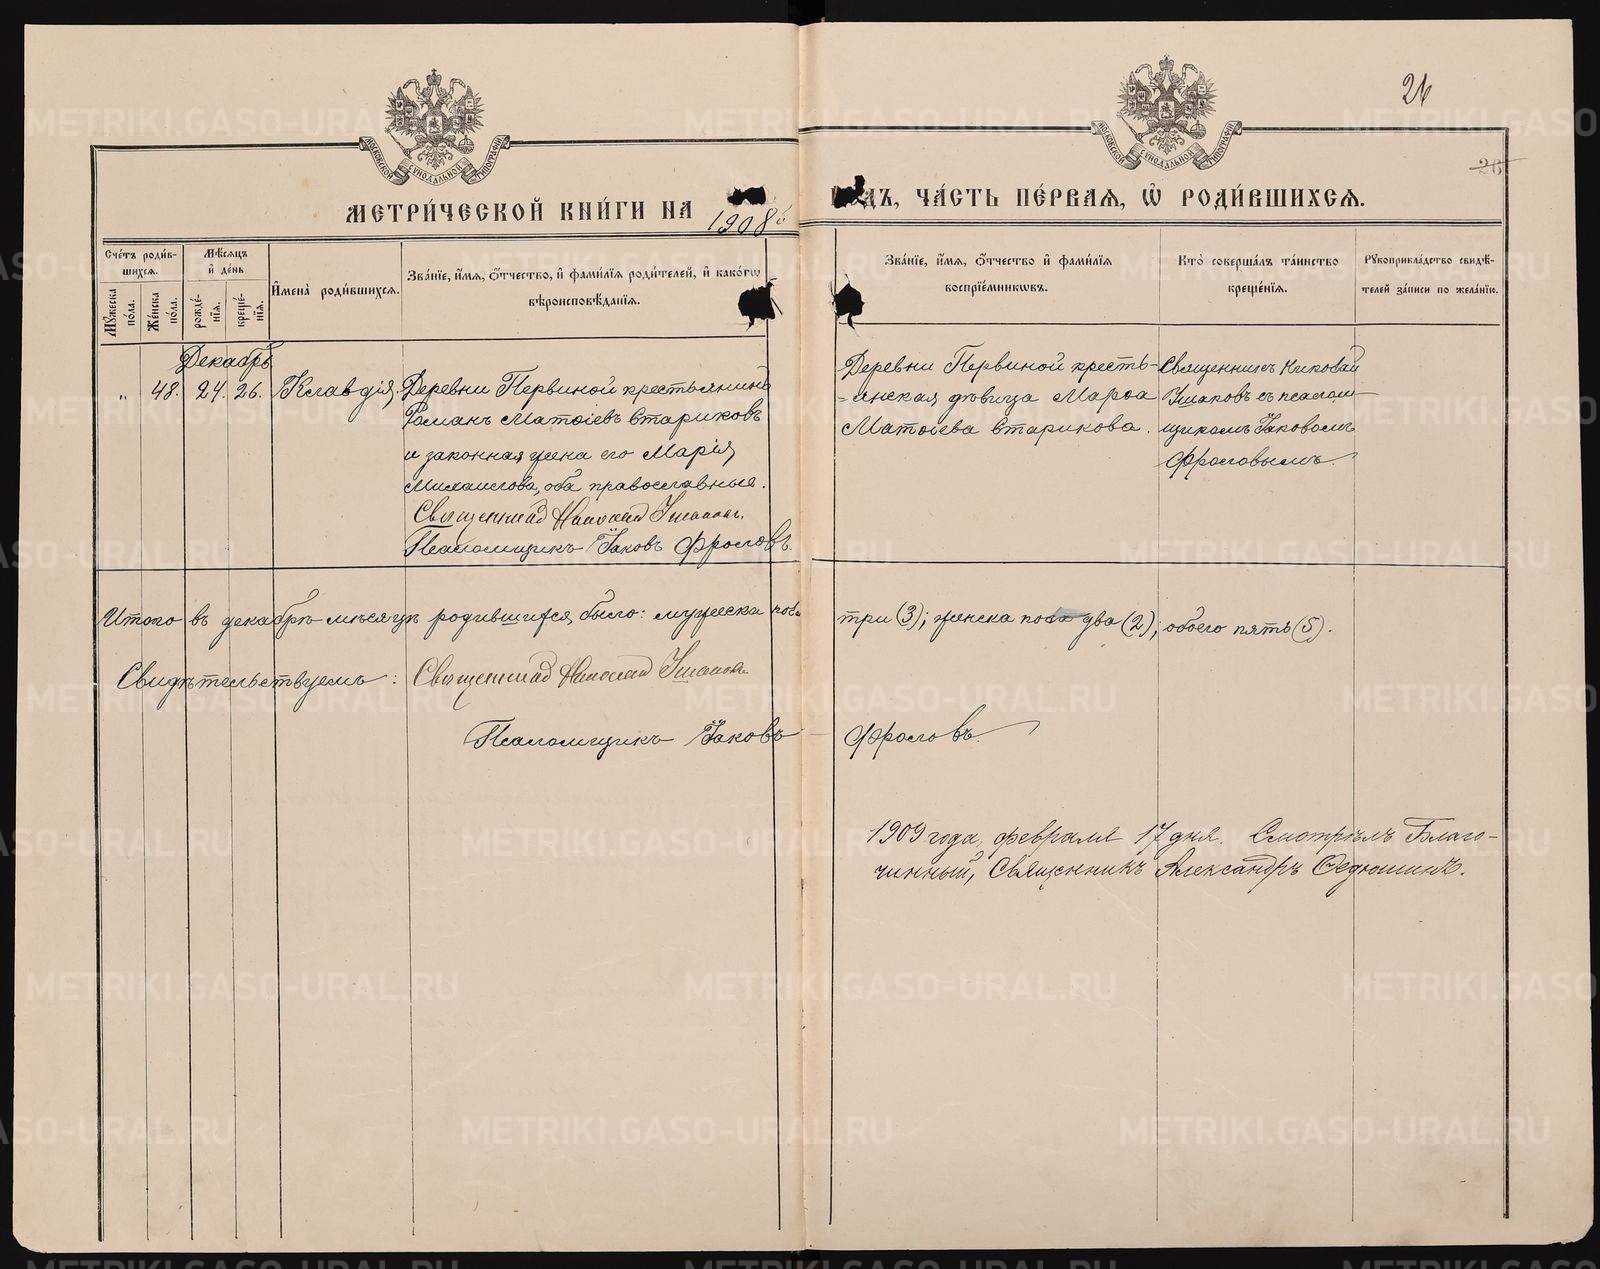 26
26
МОСКОВСКОЙ СѴНОДАЛЬНОЙ ТИПОГРАФІИ
МОСКОВСКОЙ СѴНОДАЛЬНОЙ ТИПОГРАФІИ
МЕТРИ́ЧЕСКОЙ КНИ́ГИ НА 1908й ГОДЪ, ЧА́СТЬ ПЕ́РВАѦ, Ѡ РОДИ́ВШИХСѦ.
Сче́тъ роди́в-
шихсѧ.
Мꙋ́жеска по́ла.
Же́нска по́ла.
Мѣ́сѧцъ
и҆ де́нь
рожде́-
нїѧ.
креще́-
нїѧ.
И҆мена̀ роди́вшихсѧ.
Зва́нїе, и҆́мѧ, ѻ҆́тчество, и҆ фами́лїѧ роди́телей, и҆ како́гѡ
вѣроисповѣ́данїѧ.
Зва́нїе, и҆́мѧ, ѻ҆́тчество и҆ фами́лїѧ
воспрїе́мникѡвъ.
Кто̀ соверша́лъ та́инство
креще́нїѧ.
Рꙋкоприкла́дство свидѣ́-
телей за́писи по жела́нїю.
Декабрь
„ 48. 24. 26. Клавдія.
Деревни Первиной крестьянинъ
Романъ Матѳіевъ Стариковъ
и законная жена его Марія
Михаилова, оба православные.
Священникъ Николай Ушаковъ.
Псаломщикъ Іаковъ Фроловъ.
Деревни Первиной кресть-
-янская дѣвица Марѳа
Матѳіева Старикова.
Священникъ Николай
Ушаковъ съ псалом-
щикомъ Іаковомъ
Фроловымъ.
Итого въ декабрѣ мѣсяцѣ родившихся было: мужеска пола три (3); женска пола два (2); обоего пять (5).
Свидѣтельствуемъ: Священникъ Николай Ушаковъ
Псаломщикъ Іаковъ Фроловъ.
1909 года, февраля 17 дня. Смотрѣлъ Благо-
чинный, Священникъ Александръ Ѳедюшинъ.
METRIKI.GASO-URAL.RU